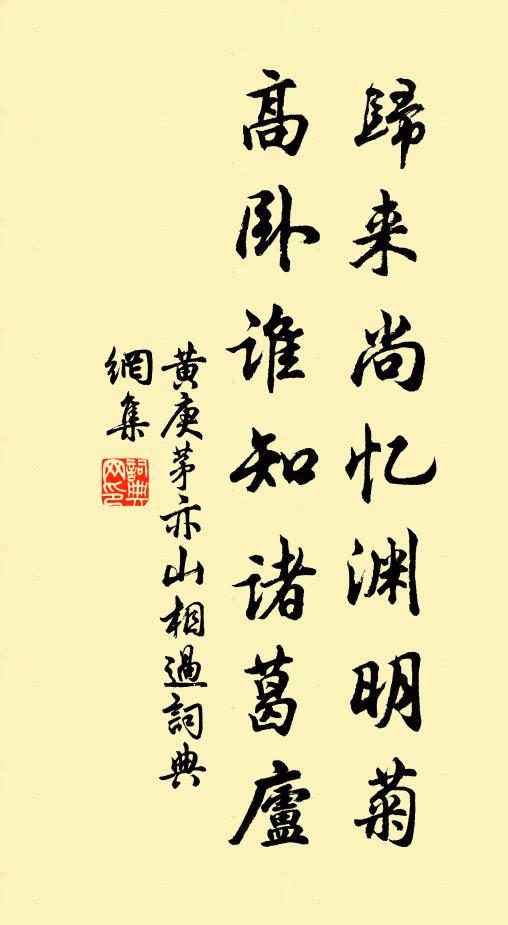 歸来尚忆渊明菊
高卧谁知诸葛廬
黄庚茅亦山相過詞典
網集
詞典網印